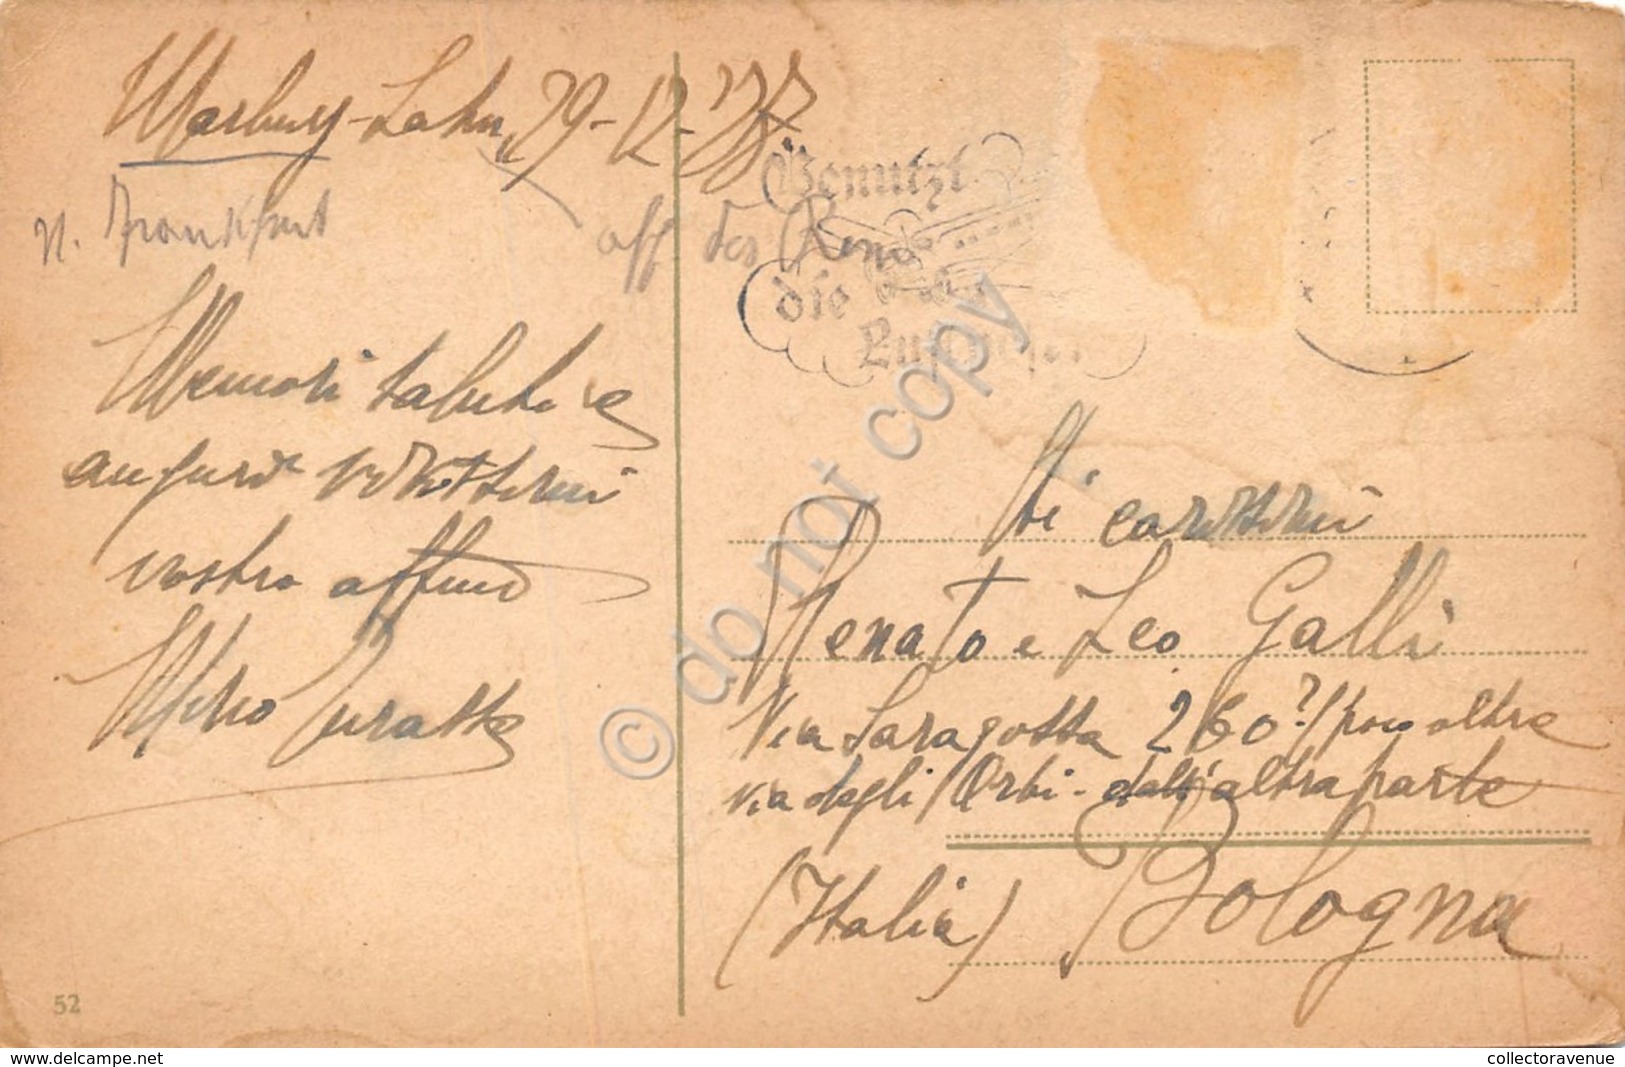 Marburg-Lahn, 29-12-
n. Frankfurt
aff. del Reno
Benutzt
die
Memori saluti e
auguri vivissimi
vostro affmo
Via Saragozza 260?/poco oltre
via degli Orbi - dall'altra parte
Ai carissimi
Renato e Leo Galli
(Italia) Bologna
52
© do not copy
www.delcampe.net
collectoravenue